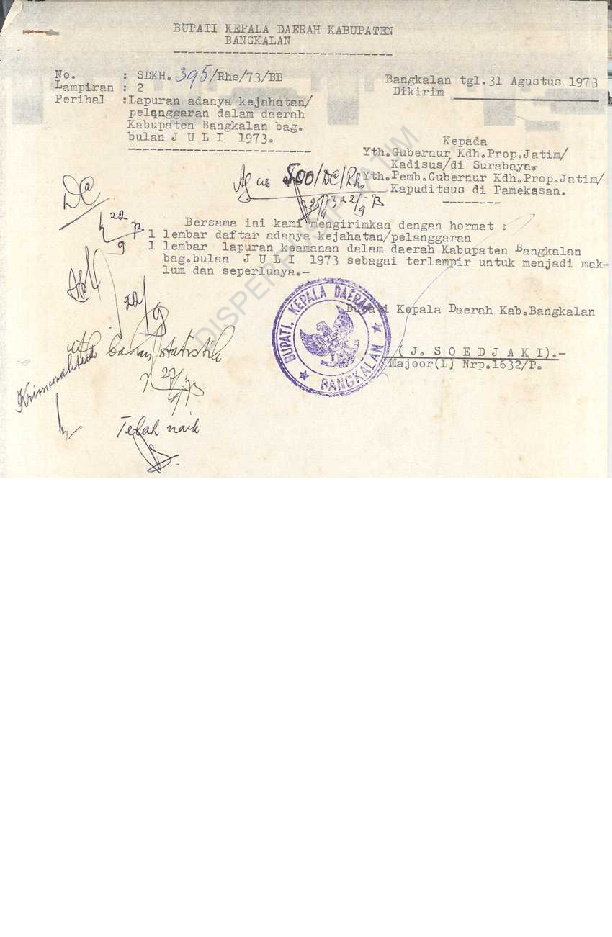 BUPATI KEPALA DAERAH KABUPATEN
BANGKALAN
No. : SDKH. 395/Rhs/73/BB
Lampiran : 2
Perihal : Lapuran adanya kejahatan/
pelanggaran dalam daerah
Kabupaten Bangkalan bag.
bulan J U L I 1973.
Bangkalan tgl. 31 Agustus 1973
Dikirim
Kepada
Yth.Gubernur Kdh.Prop.Jatim/
Kadisus/di Surabaya.
Yth.Pemb.Gubernur Kdh.Prop.Jatim/
Kapuditsus di Pamekasan.
Bersama ini kami mengirimkan dengan hormat :
1 lembar daftar adanya kejahatan/pelanggaran
1 lembar lapuran keamanan dalam daerah Kabupaten Bangkalan
bag.bulan J U L I 1973 sebagai terlampir untuk menjadi mak-
lum dan seperlunya.-
Bupati Kepala Daerah Kab.Bangkalan
BUPATI KEPALA DAERAH
BANGKALAN
( J. S O E D J A K I ).-
Majoor(L) Nrp.1632/P.
Kriminalitas
Telah naik